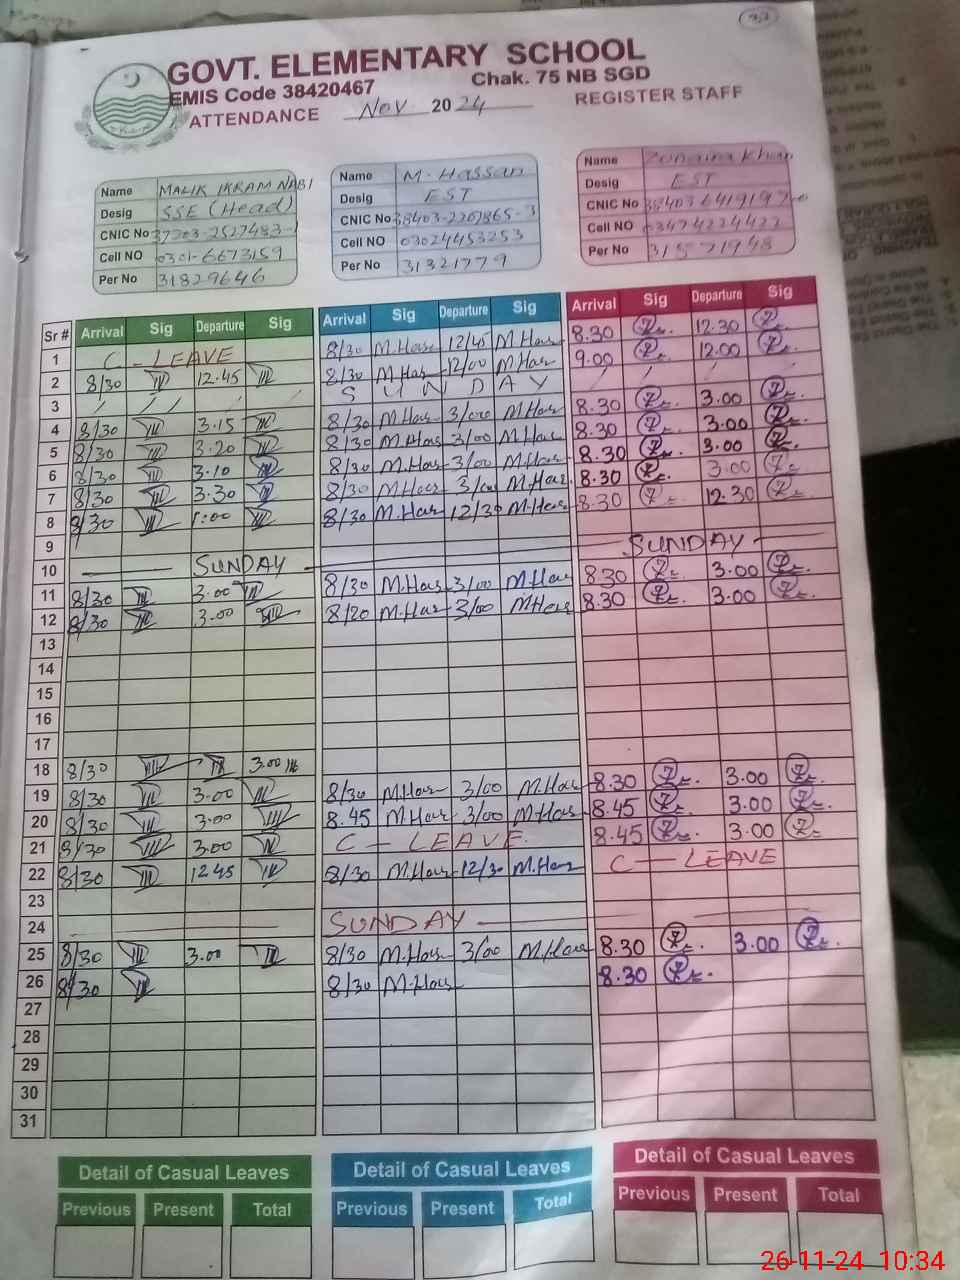 GOVT. ELEMENTARY SCHOOL
EMIS Code 38420467 Chak. 75 NB SGD
ATTENDANCE Nov 2024 REGISTER STAFF
Name MALIK IKRAM NABI
Desig SSE (Head)
CNIC No 37203-2527483-1
Cell NO 0301-6673159
Per No 31829646
Name M. Hassan
Desig EST
CNIC No
Cell NO 03024453253
Per No 31321779
Name Khan
Desig EST
CNIC No
Cell NO 03474224422
Per No 31571948
Sr # Arrival Sig Departure Sig Arrival Sig Departure Sig Arrival Sig Departure Sig
1 C - LEAVE 8/30 M.Has 12/45 M.Has 8.30 12.30
2 8/30 12.45 8/30 M.Has 12/00 M.Has 9.00 12.00
3 SUNDAY
4 8/30 3.15 8/30 M.Has 3/00 M.Has 8.30 3.00
5 8/30 3.20 8/30 M.Has 3/00 M.Has 8.30 3.00
6 8/30 3.10 8/30 M.Has 3/00 M.Has 8.30 3.00
7 8/30 3.30 8/30 M.Has 3/00 M.Has 8.30 3.00
8 8/30 1:00 8/30 M.Has 12/30 M.Has 8.30 12.30
9
10 SUNDAY SUNDAY
11 8/30 3.00 8/30 M.Has 3/00 M.Has 8.30 3.00
12 8/30 3.00 8/20 M.Has 3/00 M.Has 8.30 3.00
13
14
15
16
17
18 8/30 3.00
19 8/30 3.00 8/30 M.Has 3/00 M.Has 8.30 3.00
20 8/30 3.00 8.45 M.Has 3/00 M.Has 8.45 3.00
21 8/30 3.00 C - LEAVE 8.45 3.00
22 8/30 12 45 8/30 M.Has 12/30 M.Has C - LEAVE
23
24 SUNDAY
25 8/30 3.00 8/30 M.Has 3/00 M.Has 8.30 3.00
26 8/30 8/30 M.Has 8.30
27
28
29
30
31
Detail of Casual Leaves Detail of Casual Leaves Detail of Casual Leaves
Previous Present Total Previous Present Total Previous Present Total
26-11-24 10:34